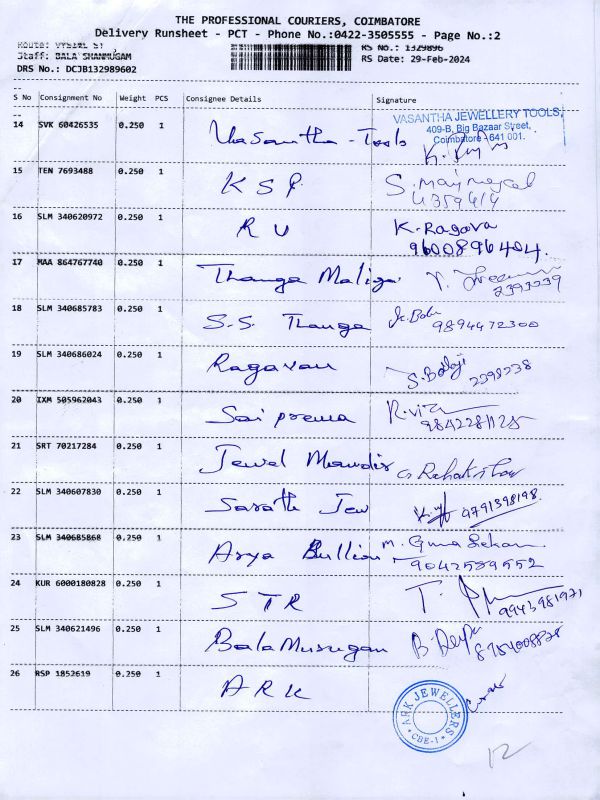 THE PROFESSIONAL COURIERS, COIMBATORE
Delivery Runsheet - PCT - Phone No.:0422-3505555 - Page No.:2
RS No.: 1329896
Staff: BALA SHANMUGAM
RS Date: 29-Feb-2024
DRS No.: DCJB132989602
S No Consignment No Weight PCS Consignee Details Signature
14 SVK 60426535 0.250 1 Vasantha-Tools
VASANTHA JEWELLERY TOOLS,
409-B, Big Bazaar Street,
Coimbatore - 641 001.
15 TEN 7693488 0.250 1
4359414
16 SLM 340620972 0.250 1 R U K.Ragava
9600896404.
17 MAA 864767740 0.250 1 Thanga Maliga
2393239
18 SLM 340685783 0.250 1 S.S. Thanga
9894472300
19 SLM 340686024 0.250 1 Ragavan S.Balaji 2398238
20 IXM 505962043 0.250 1 Sai prema
9842281125
21 SRT 70217284 0.250 1 Jewel Mandir
22 SLM 340607830 0.250 1 Sarath Jew 9791398198
23 SLM 340685868 0.250 1 Arya Bullion M. Guna Sekar
9042589552
24 KUR 6000180828 0.250 1 STR
9943981971
25 SLM 340621496 0.250 1 BalaMurugan B.Deepa
8754008828
26 RSP 1852619 0.250 1 ARK
ARK JEWELLERS
CBE-1
12